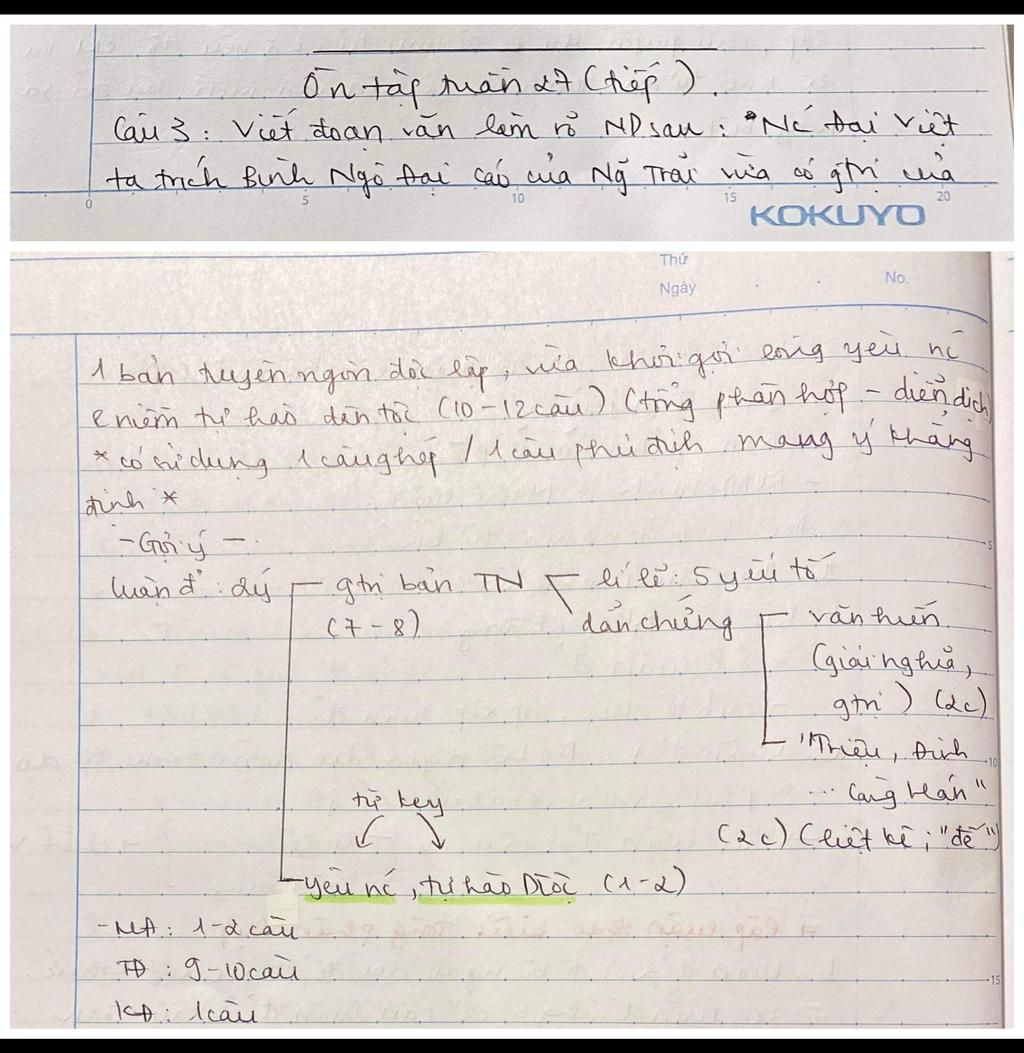 Ôn tập tuần 27 (tiếp).
Câu 3 : Viết đoạn văn làm rõ ND sau : "Nc Đại Việt
ta trích Bình Ngô Đại cáo của Ng Trãi vừa có gtrị của
0 5 10 15 20
KOKUYO
Thứ
Ngày No.
1 bản tuyên ngôn độc lập, vừa khơi gợi lòng yêu nc
niềm tự hào dân tộc (10-12 câu) (tổng phân hợp - diễn dịch)
* có sử dụng 1 câu ghép / 1 câu phủ định mang ý khẳng
định *
- Gợi ý -
luận đ' : 2 ý gtrị bản TN lí lẽ : 5 yếu tố
(7-8) dẫn chứng văn hiến
(giải nghĩa,
gtrị) (2c)
"Triệu, Đinh
... cùng Hán"
từ key
(2c) (liệt kê ; "đế")
yêu nc, tự hào Dtộc (1-2)
- MĐ : 1-2 câu
TĐ : 9-10 câu
KĐ : 1 câu
5
10
15